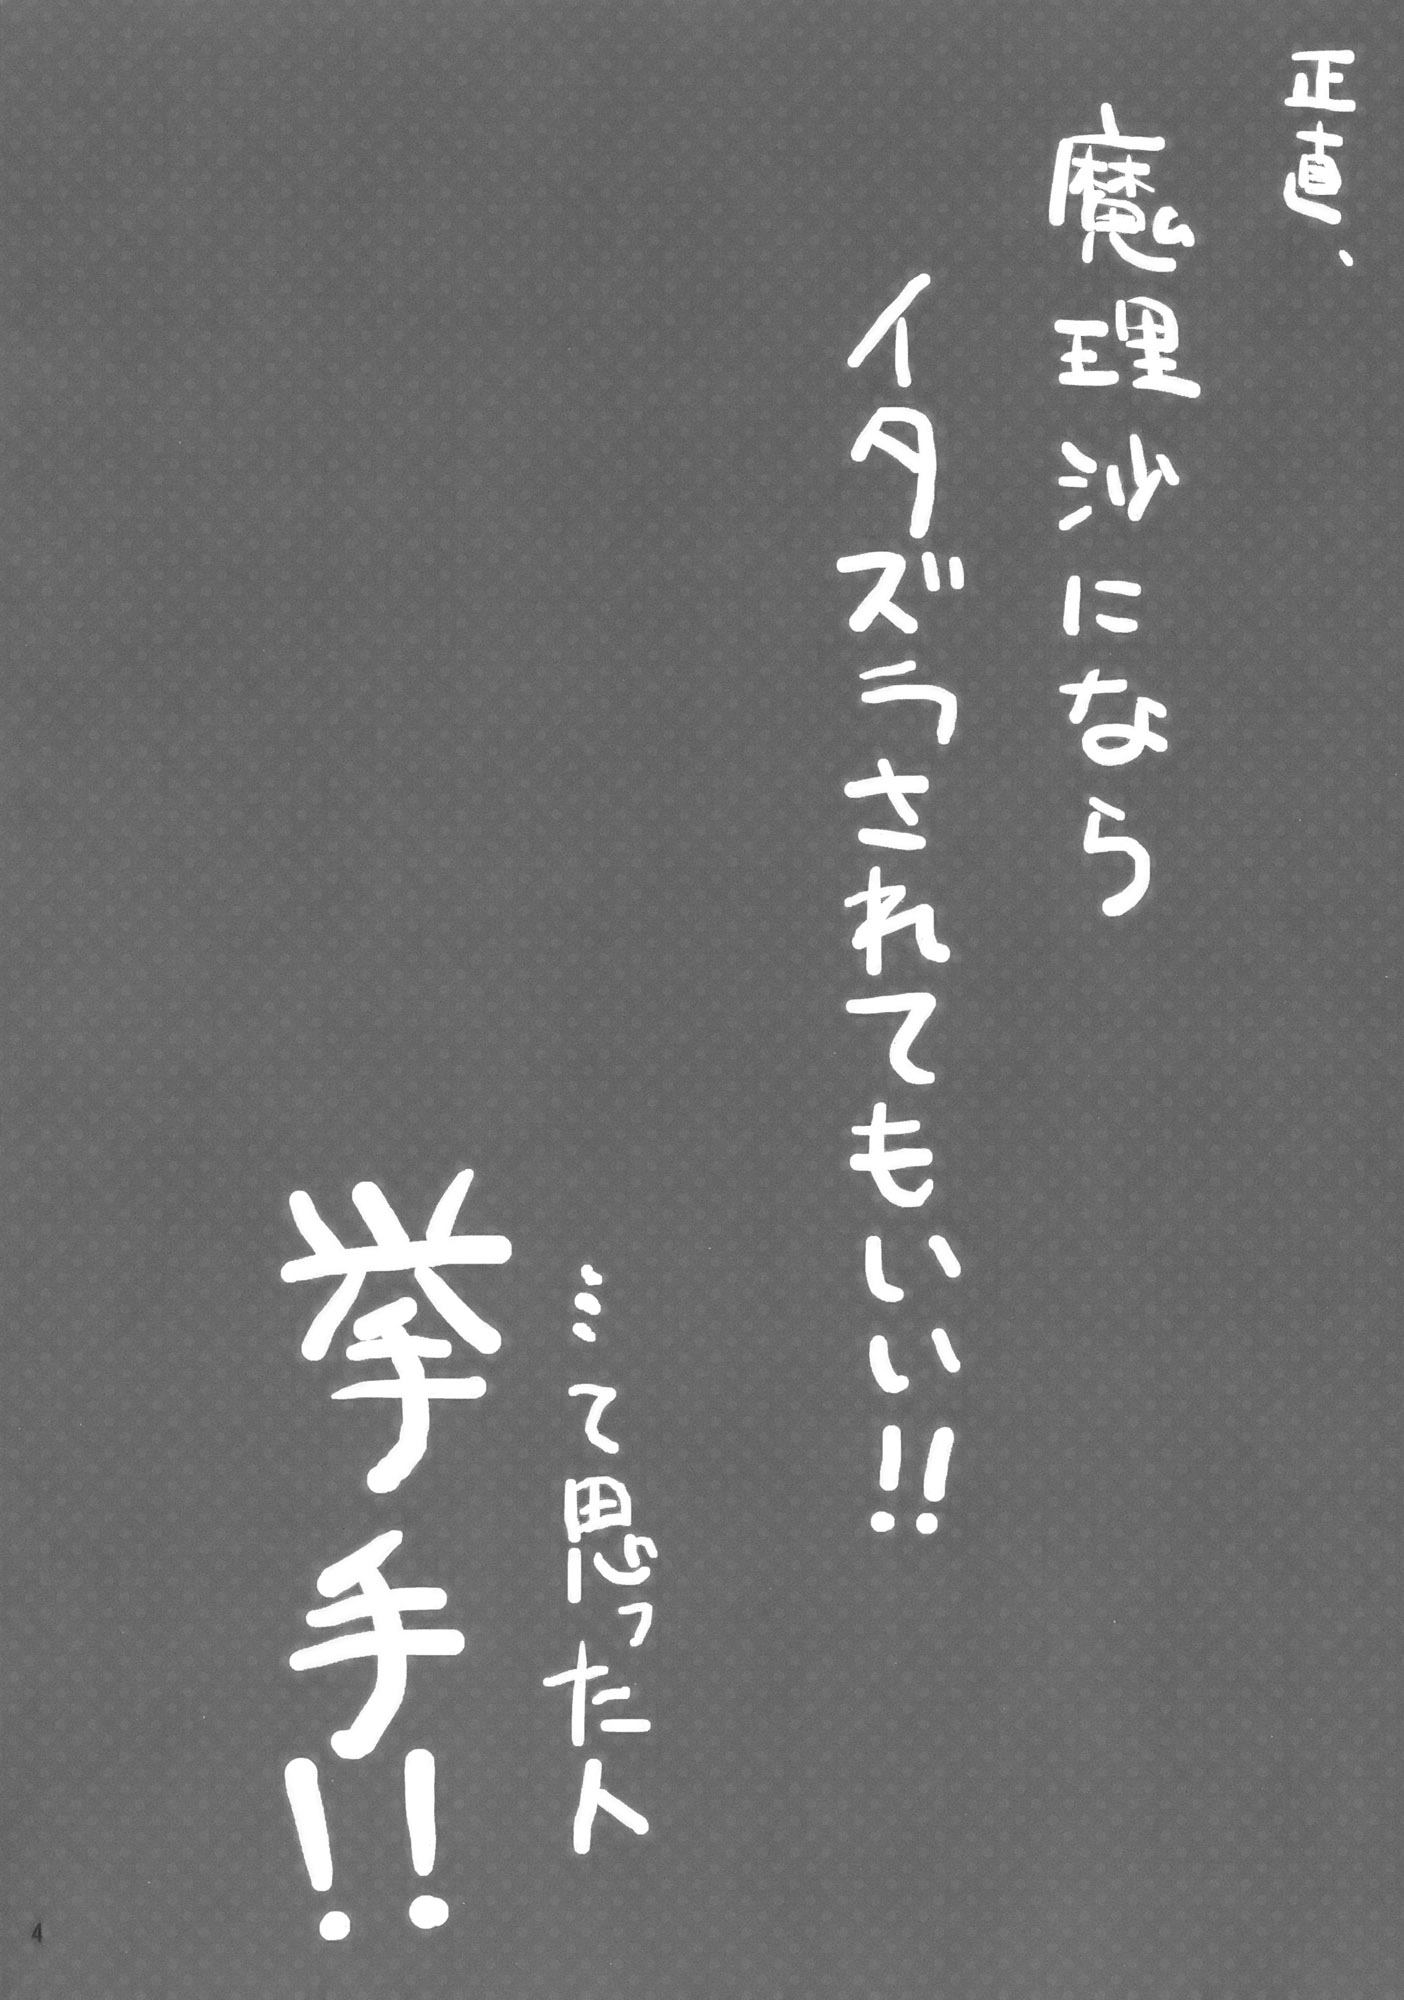 正直、
魔理沙になら
イタズラされてもいい!!
…て思った人
挙手!!
4